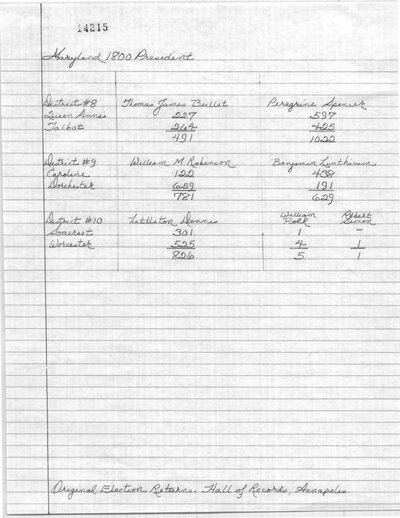 14215
Maryland 1800 President
District #8 Thomas James Bullitt Peregrine Spencer
Queen Annes 227 597
Talbot 264 425
491 1022
District #9 William M Robinson Benjamin Linthicum
Caroline 122 438
Dorchester 659 191
781 629
District #10 Littleton Dennis William Polk Robert
Somerset 301 1 –
Worcester 525 4 1
826 5 1
Original Election Returns. Hall of Records, Annapolis.